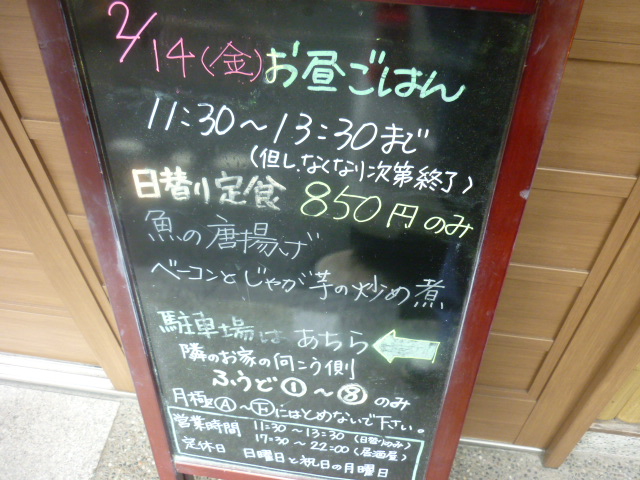 2/14(金)お昼ごはん
11:30～13:30まで
(但し、なくなり次第終了)
日替り定食 850円のみ
魚の唐揚げ
ベーコンとじゃが芋の炒め煮
駐車場は あちら
隣のお家の向こう側
ふうど①～⑧のみ
月極Ⓐ～Ⓕにはとめないで下さい。
営業時間 11:30～13:30(日替りのみ)
17:30～22:00(居酒屋)
定休日 日曜日と祝日の月曜日